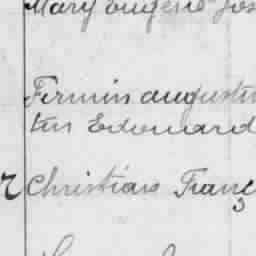 Mary Eugene Jos
Firmin augustin
tin Edouard
r Christian Franç